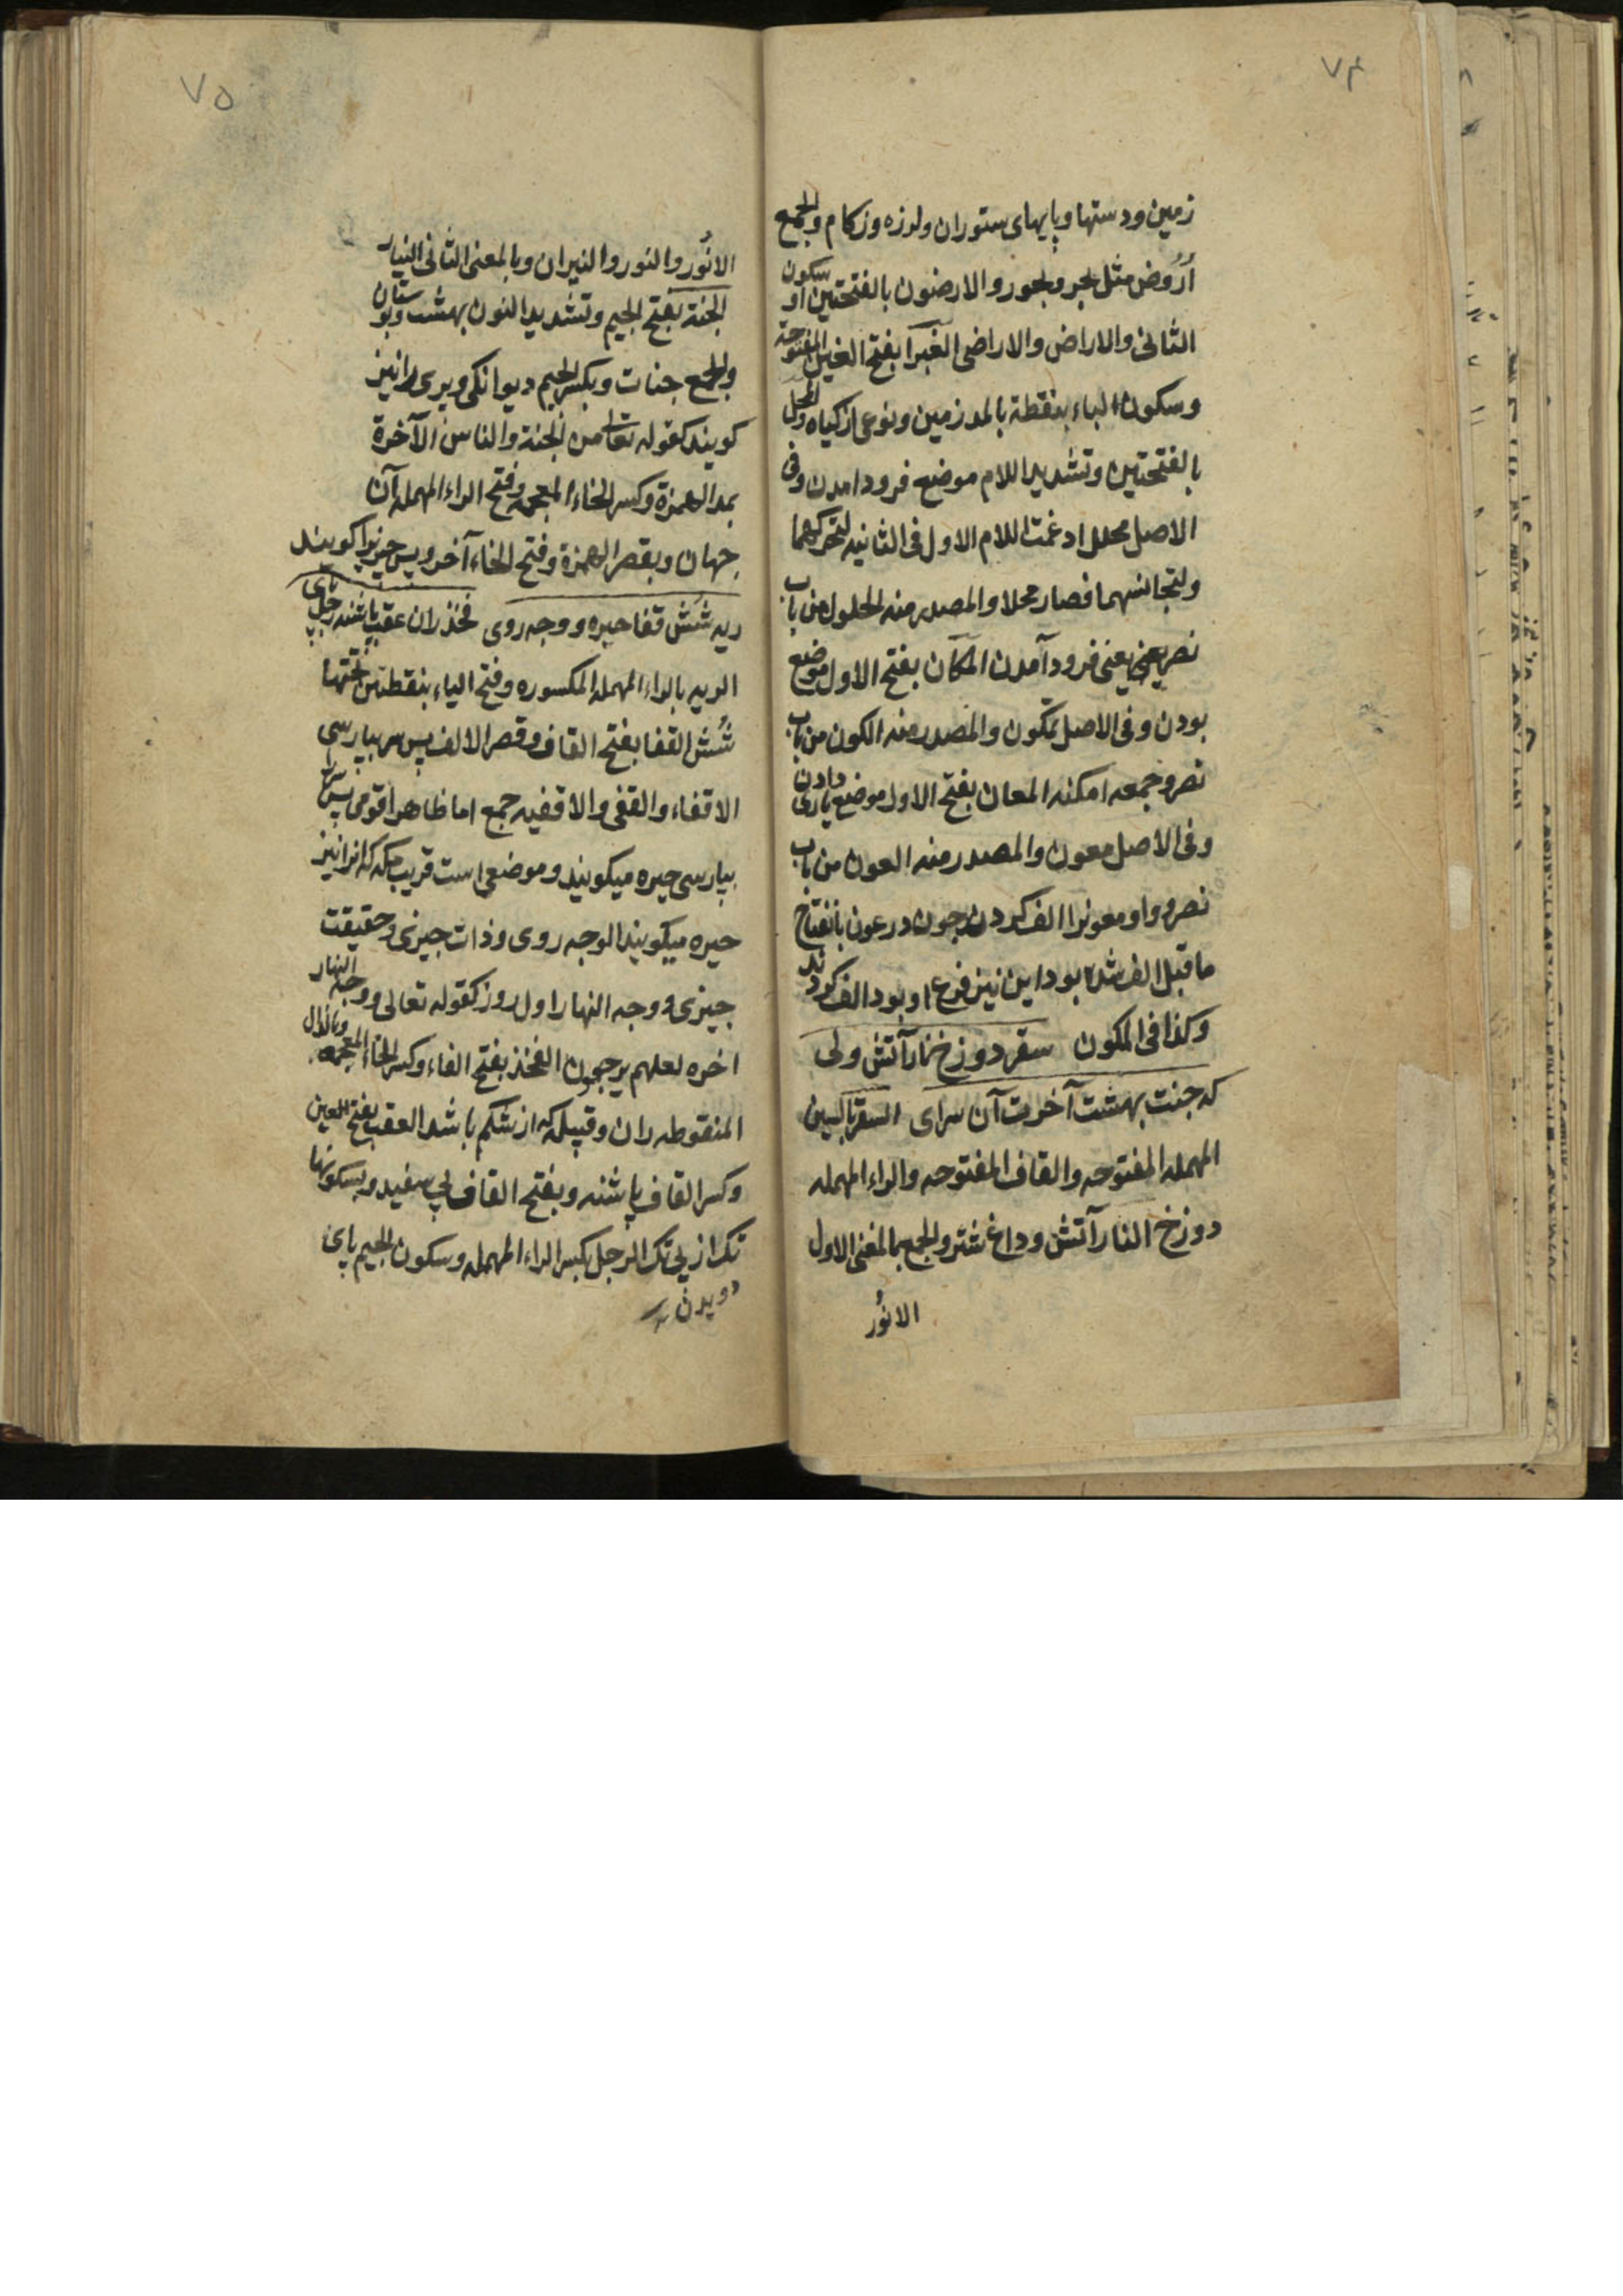 ۷۴
زمین ودستها وپایهای ستوران ولرزه وزکام والجمع
أرُوض مثل بحر وبحور والارضون بالفتحتین او سکون
الثانی والاراض والاراضی الغبرآ بفتح الغین المفتوحة
وسکون الباء بنقطة بالمد زمین ونوعی از کیاه والمحل
بالفتحتین وتشدید اللام موضع فرود امدن وفی
الاصل محلل ادغمت اللام الاول فی الثانیه لتحرکهما
ولتجانسهما فصار محلا والمصدر منه الحلول من باب
نصر یعنی فرود آمدن المکان بفتح الاول موضع
بودن وفی الاصل مکون والمصدر منه الکون من باب
نصر وجمعه امکنه المعان بفتح الاول موضع یاری دادن
وفی الاصل معون والمصدر منه العون من باب
نصر وواو معونرا الف کردن چون در عون بانفتاح
ماقبل الف شده بود این نیز فرع او بود الف کردند
وکذا فی المکون سقر دوزخ نار آتش ولی
که جنت بهشت آخرت آن سرای السقر بالسین
المهمله المفتوحه والقاف المفتوحه والراء المهمله
دوزخ النار آتش وداغ شتر والجمع بالمعنی الاول
الانوُر
۷۵
الانوُر والنور والنیران وبالمعنی الثانی النیار
الجنة بفتح الجیم وتشدید النون بهشت وبوستان
والجمع جنات وبکسر الجیم دیوانکی وپری را نیز
کویند کقوله تعالی من الجنة والناس الآخرة
بمد الهمزة وکسر الخاء المعجمه وفتح الراء المهمله آن
جهان وبقصر الهمزة وفتح الخاء آخر وپس چیزیرا کویند
ریه شُش قفا حبره ووجه روی فخذ ران عقب پاشنه رجل پای
الریه بالراء المهمله المکسوره وفتح الیاء بنقطتین تحتها
شُش القفا بفتح القاف وقصر الالف پس سر بپارسی
الاقفاء والقفی والاقفیه جمع اما ظاهرا قومی
بپارسی حیره میکویند وموضعی است قریب مکه که انرا نیز
حیره میکویند الوجه روی وذات چیزی وحقیقت
چیزی ووجه النهار اول روز کقوله تعالی ووجه النهار
اخره لعلهم یرجعون الفخذ بفتح الفاء وکسر الخاء المعجمه وبالذال
المنقوطه ران وقبیله که از شکم باشد العقب بفتح العین
وکسر القاف پاشنه وبفتح القاف پی سفید وبسکونها
تک از پی تک الرجل بکسر الراء المهمله وسکون الجیم پای
دویدن